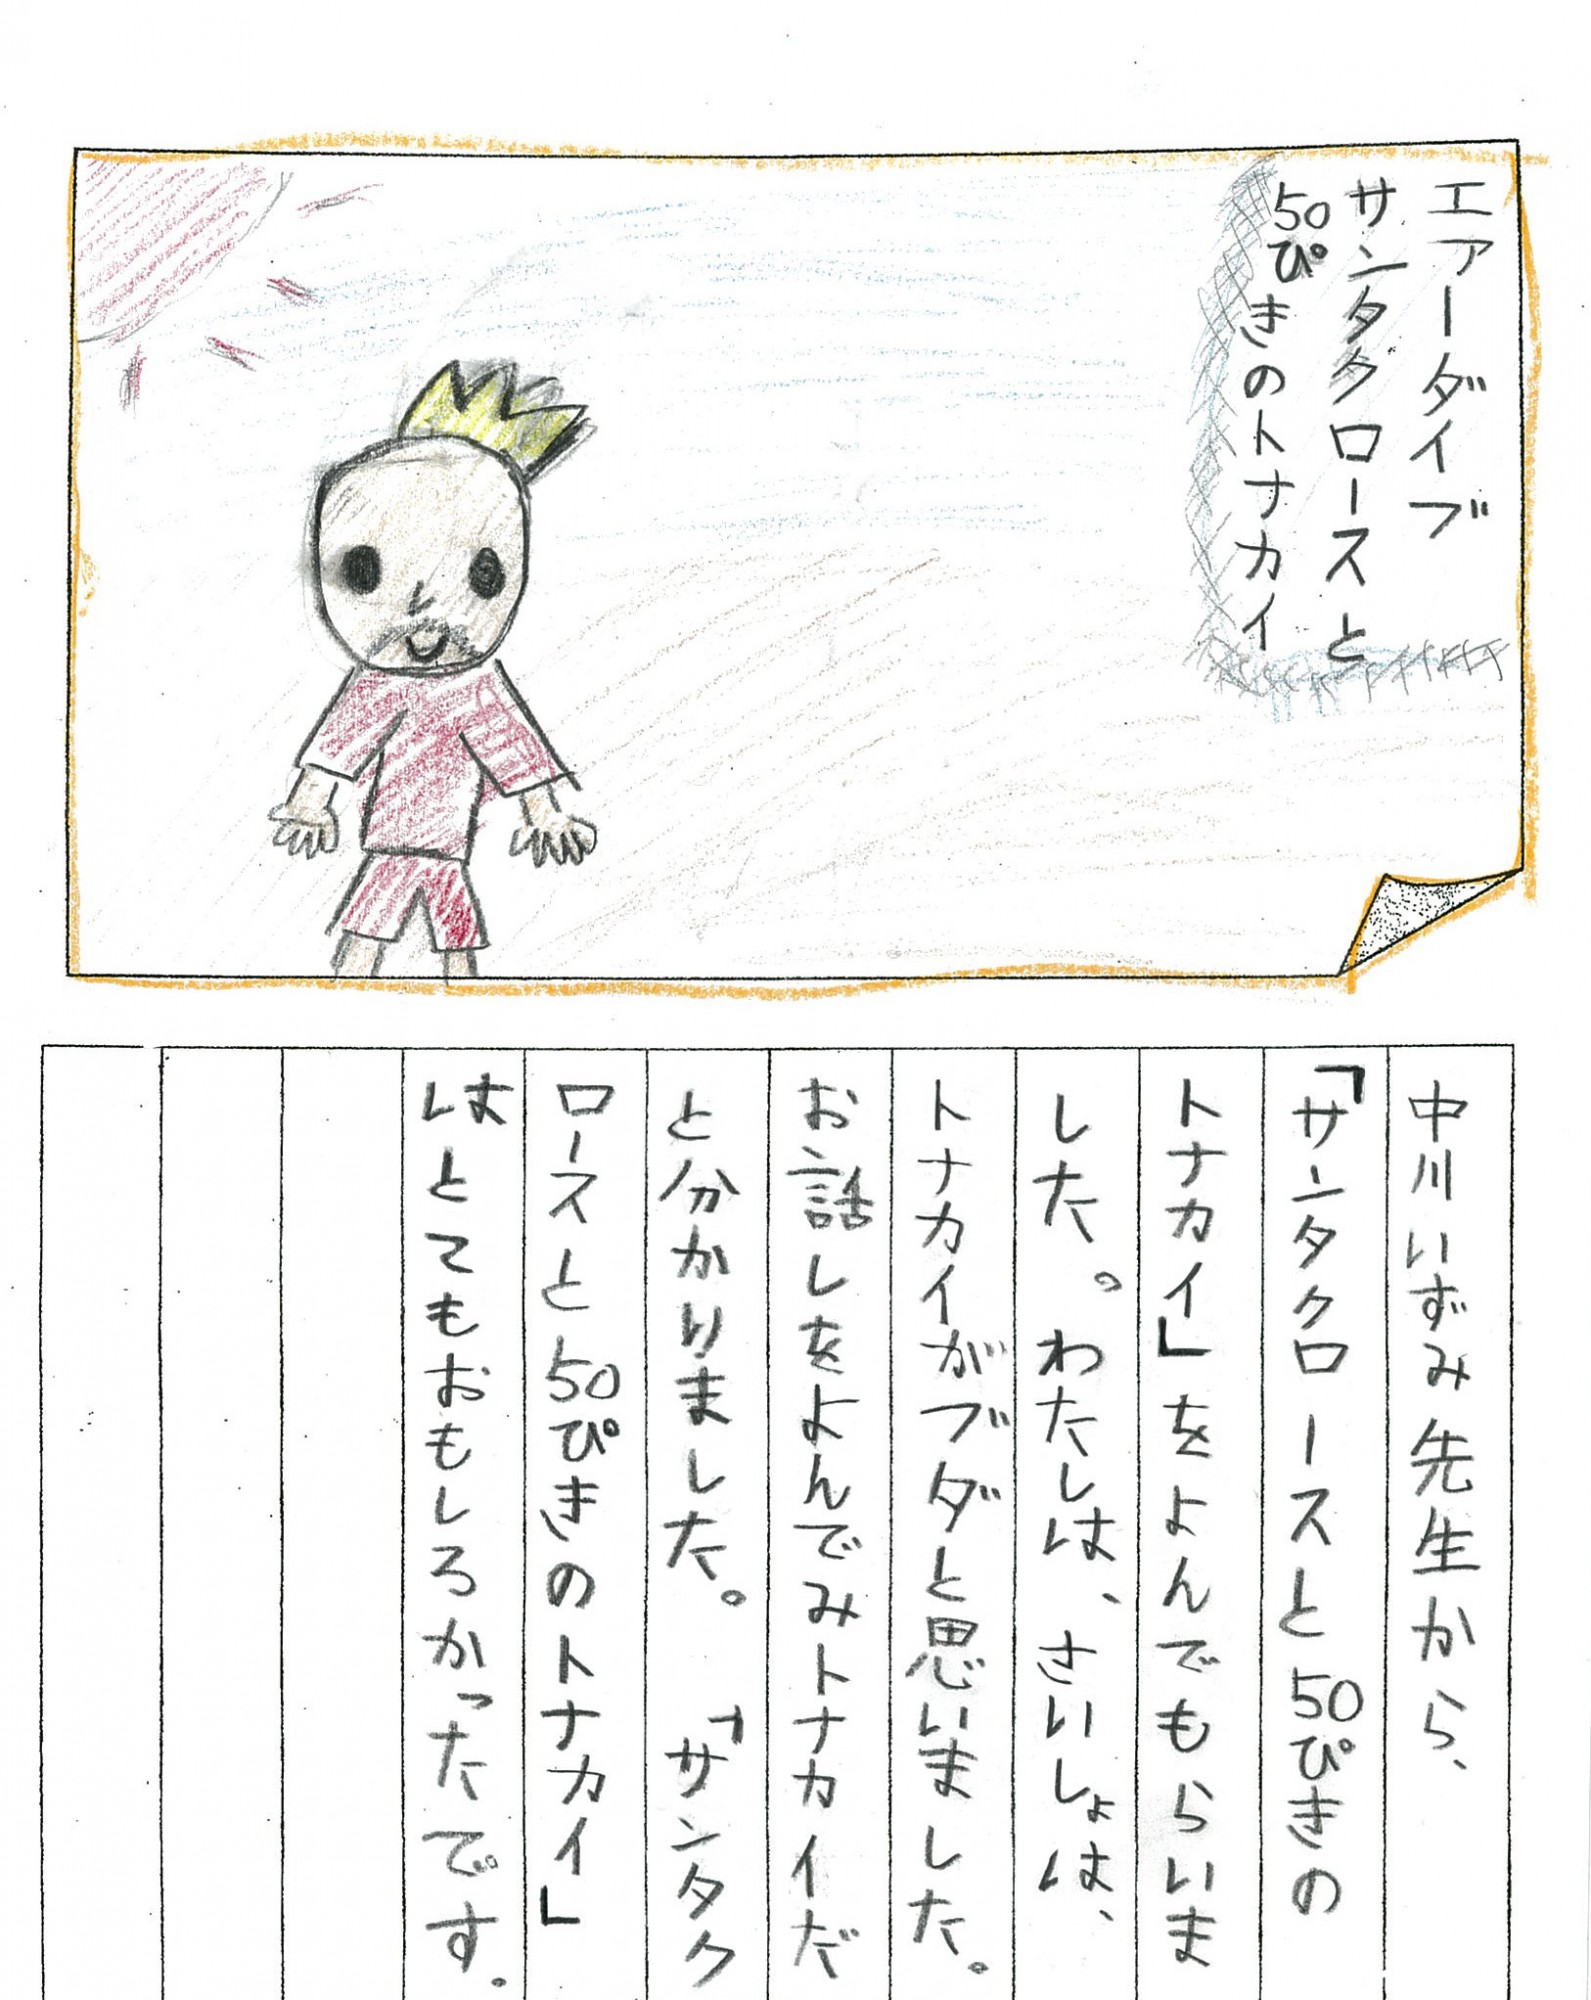 エアーダイブ
サンタクロースと
50ぴきのトナカイ
中川いずみ先生から、
「サンタクロースと50ぴきの
トナカイ」をよんでもらいま
した。わたしは、さいしょは、
トナカイがブダと思いました。
お話しをよんでみトナカイだ
と分かりました。「サンタク
ロースと50ぴきのトナカイ」
はとてもおもしろかったです。